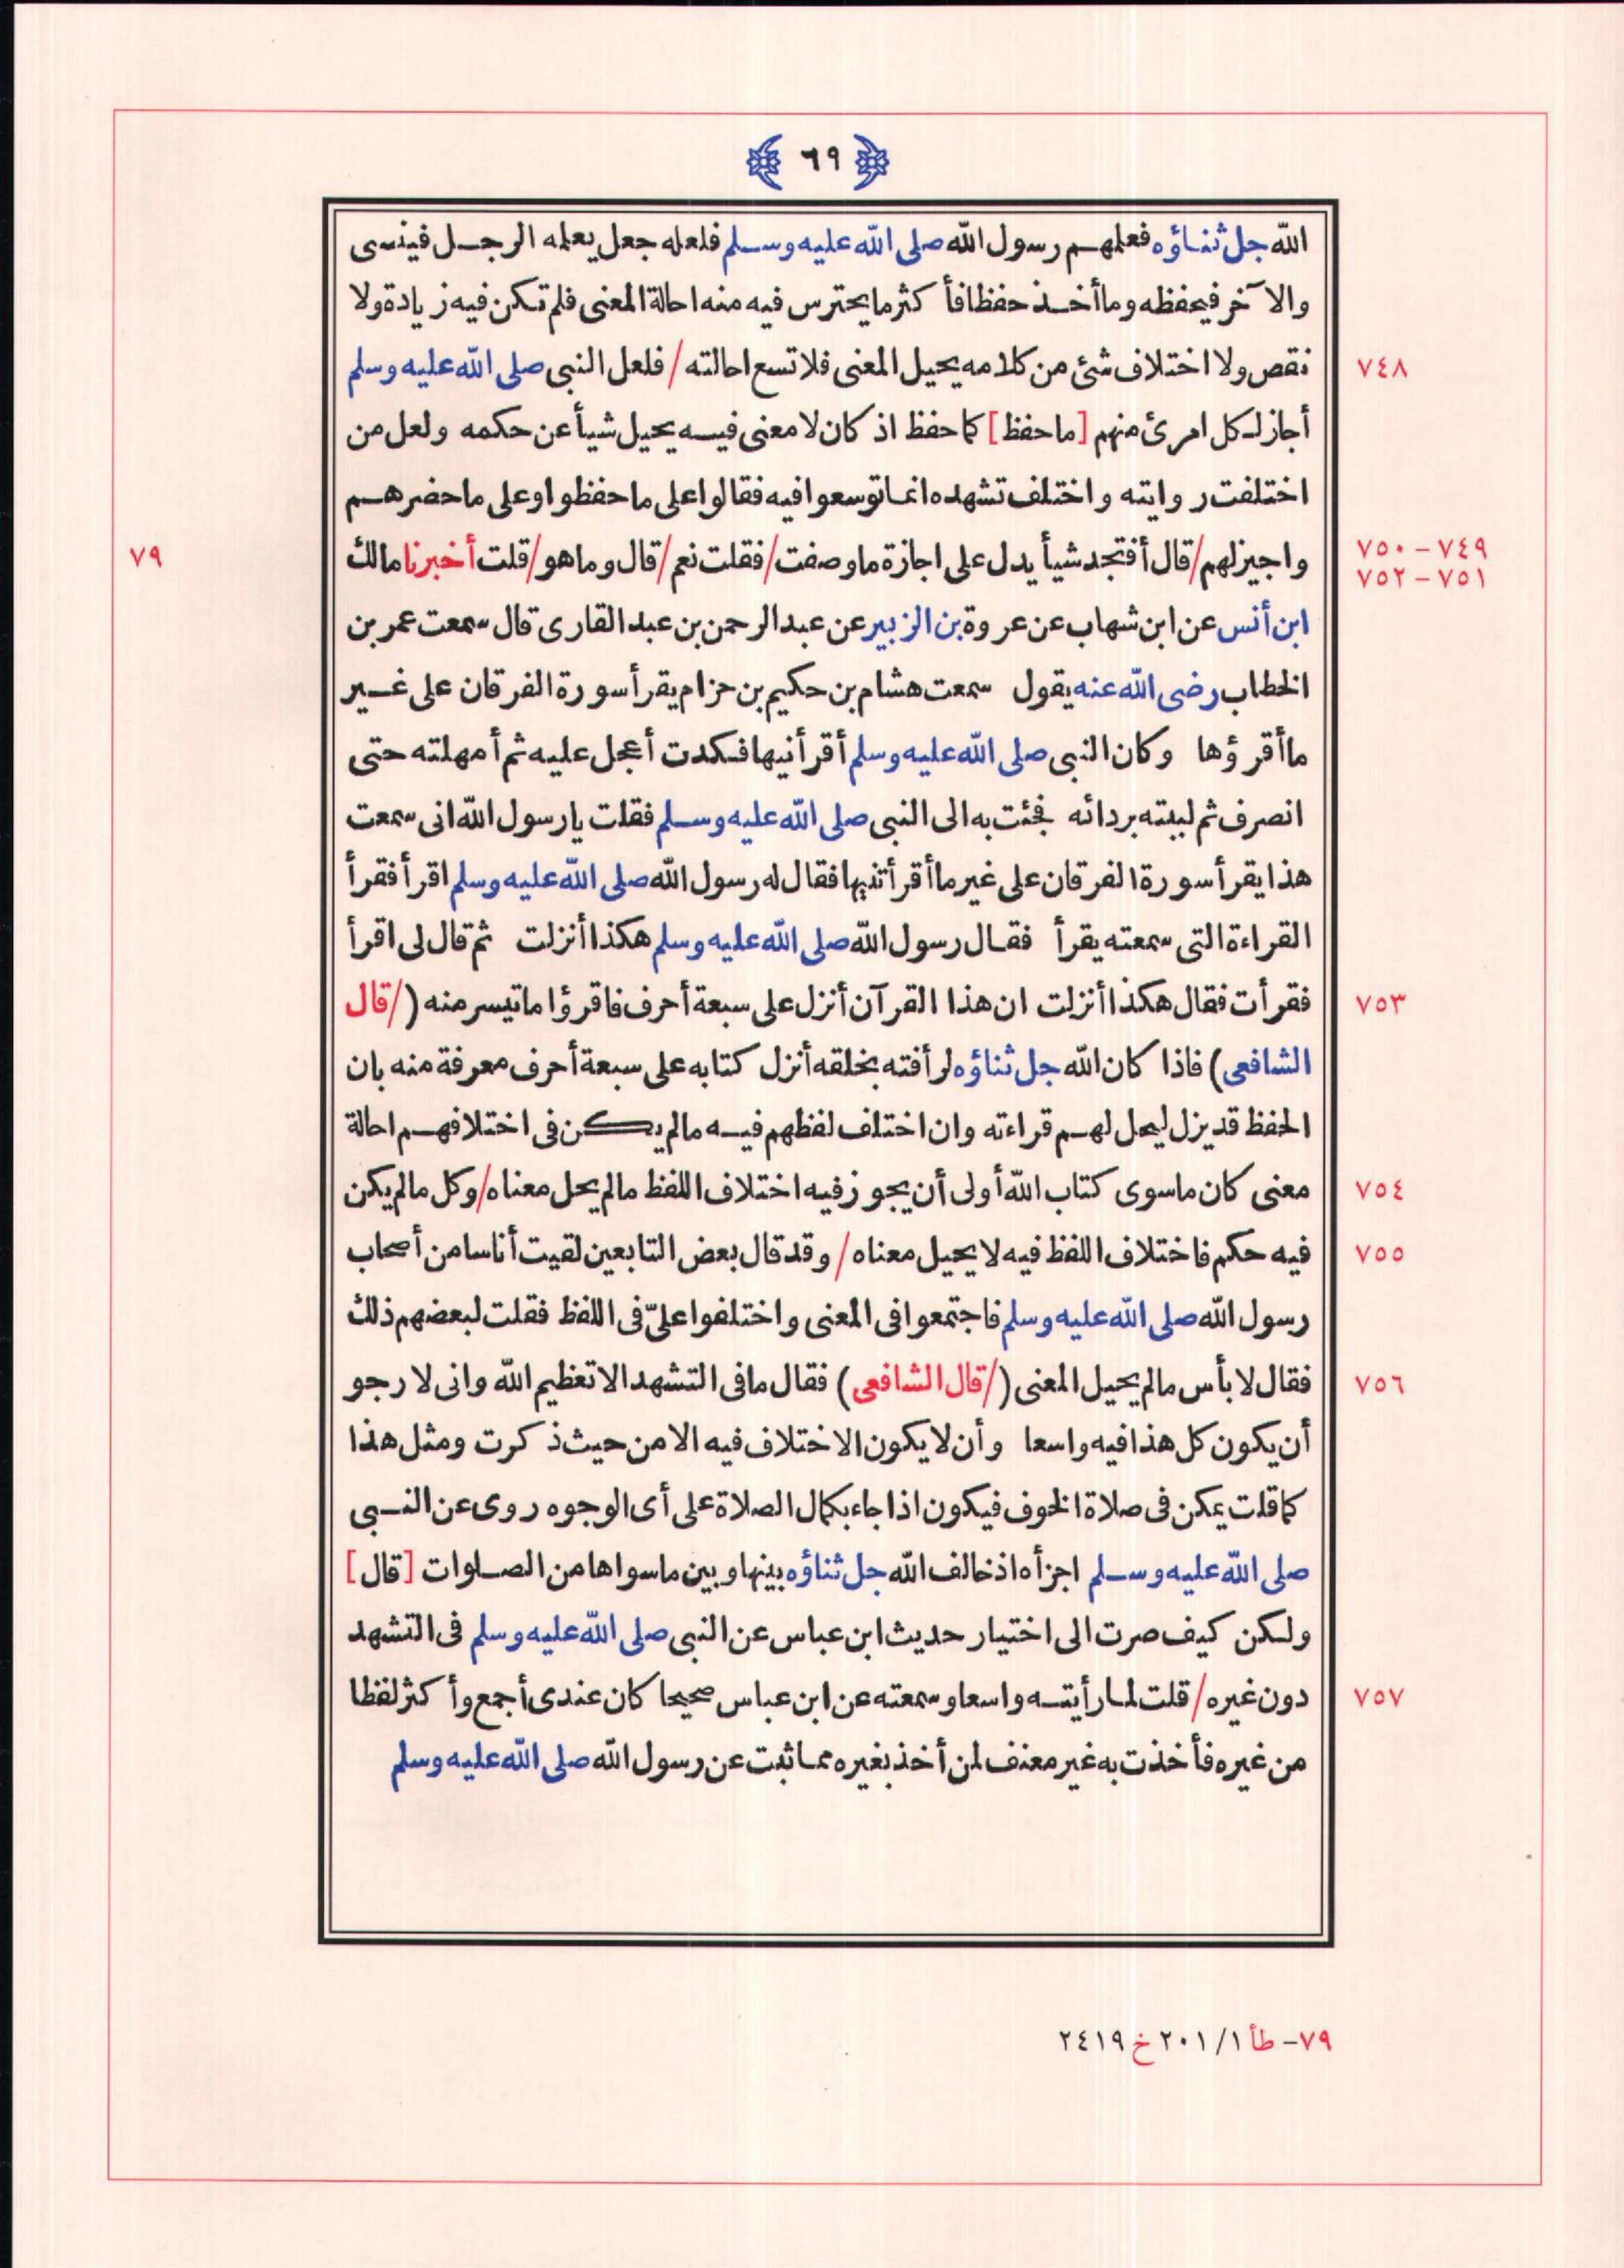 ٦٩
الله جل ثناؤه فعلمهم رسول الله صلى الله عليه وسلم فلعله جعل يعلمه الرجل فينسى
والآخر فيحفظه وما أخذ حفظا فأكثر ما يحترس فيه منه احالة المعنى فلم تكن فيه زيادة ولا
نقص ولا اختلاف شئ من كلامه يحيل المعنى فلا تسع احالته / فلعل النبى صلى الله عليه وسلم ٧٤٨
أجاز لكل امرئ منهم [ما حفظ] كما حفظ اذ كان لا معنى فيه يحيل شيأ عن حكمه ولعل من
اختلفت روايته واختلف تشهده انما توسعوا فيه فقالوا على ما حفظوا وعلى ما حضرهم
واجيز لهم / قال أفتجد شيأ يدل على اجازة ما وصفت / فقلت نعم / قال وما هو / قلت أخبرنا مالك ٧٤٩ – ٧٥٠
٧٥١ – ٧٥٢
٧٩
ابن أنس عن ابن شهاب عن عروة بن الزبير عن عبد الرحمن بن عبد القارى قال سمعت عمر بن
الخطاب رضى الله عنه يقول سمعت هشام بن حكيم بن حزام يقرأ سورة الفرقان على غير
ما أقرؤها وكان النبى صلى الله عليه وسلم أقرأنيها فكدت أعجل عليه ثم أمهلته حتى
انصرف ثم لببته بردائه فجئت به الى النبى صلى الله عليه وسلم فقلت يا رسول الله انى سمعت
هذا يقرأ سورة الفرقان على غير ما أقرأتنيها فقال له رسول الله صلى الله عليه وسلم اقرأ فقرأ
القراءة التى سمعته يقرأ فقال رسول الله صلى الله عليه وسلم هكذا أنزلت ثم قال لى اقرأ
فقرأت فقال هكذا أنزلت ان هذا القرآن أنزل على سبعة أحرف فاقرؤا ما تيسر منه (/ قال ٧٥٣
الشافعى) فاذا كان الله جل ثناؤه لرأفته بخلقه أنزل كتابه على سبعة أحرف معرفة منه بان
الحفظ قد يزل ليحل لهم قراءته وان اختلف لفظهم فيه ما لم يكن فى اختلافهم احالة
معنى كان ما سوى كتاب الله أولى أن يجوز فيه اختلاف اللفظ ما لم يحل معناه / وكل ما لم يكن ٧٥٤
فيه حكم فاختلاف اللفظ فيه لا يحيل معناه / وقد قال بعض التابعين لقيت أناسا من أصحاب ٧٥٥
رسول الله صلى الله عليه وسلم فاجتمعوا فى المعنى واختلفوا علىّ فى اللفظ فقلت لبعضهم ذلك
فقال لا بأس ما لم يحيل المعنى (/ قال الشافعى) فقال ما فى التشهد الا تعظيم الله وانى لارجو ٧٥٦
أن يكون كل هذا فيه واسعا وأن لا يكون الاختلاف فيه الا من حيث ذكرت ومثل هذا
كما قلت يمكن فى صلاة الخوف فيكون اذا جاء بكمال الصلاة على أى الوجوه روى عن النبى
صلى الله عليه وسلم اجزأه اذ خالف الله جل ثناؤه بينها وبين ما سواها من الصلوات [قال]
ولكن كيف صرت الى اختيار حديث ابن عباس عن النبى صلى الله عليه وسلم فى التشهد
دون غيره / قلت لما رأيته واسعا وسمعته عن ابن عباس صحيحا كان عندى أجمع وأكثر لفظا ٧٥٧
من غيره فأخذت به غير معنف لمن أخذ بغيره مما ثبت عن رسول الله صلى الله عليه وسلم
٧٩– طأ ١/ ٢٠١ خ ٢٤١٩